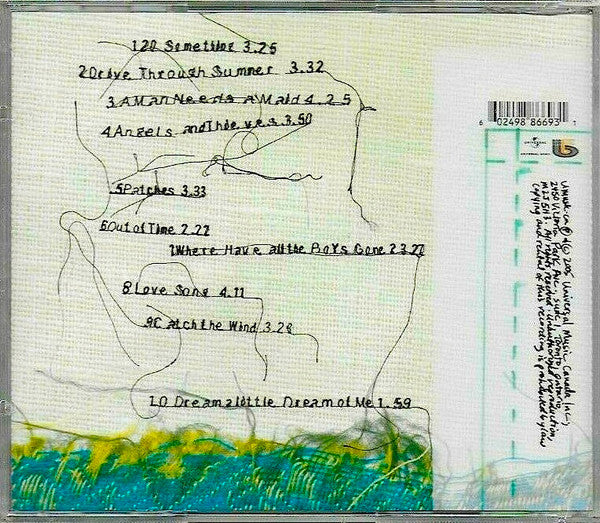 1 20 Something 3.25
2 Drive Through Summer 3.32
3 A Man Needs a Maid 4.25
4 Angels and Thieves 3.50
5 Patches 3.33
6 Out of Time 2.22
7 Where Have all the Boys Gone? 3.27
8 Love Song 4.11
9 Catch the Wind 3.28
10 Dream a little Dream of Me 1.59
6 02498 86693 1
UNIVERSAL
UNIVERSAL MUSIC
b
2005 Universal Music Canada Inc.,
2450 Victoria Park Ave., Suite 1, Toronto, Ontario
M2J 5H3. All rights reserved. Unauthorized reproduction,
copying and rental of this recording is prohibited by law